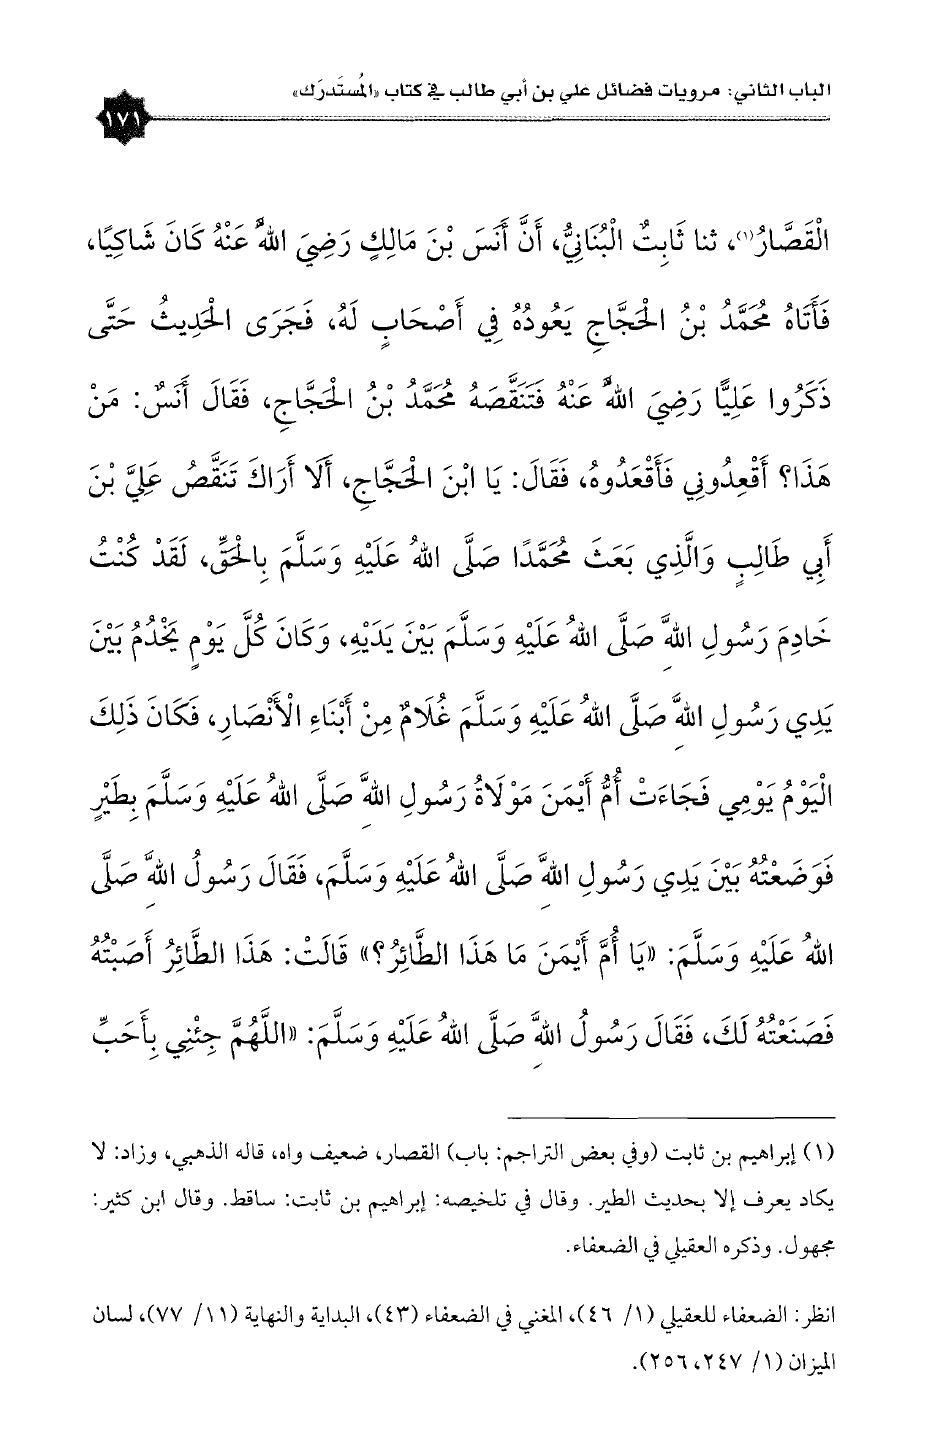 الباب الثاني: مرويات فضائل علي بن أبي طالب في كتاب «المُستَدرَك»
١٧١
الْقَصَّارُ(١)، ثنا ثَابِتٌ الْبُنَانِيُّ، أَنَّ أَنَسَ بْنَ مَالِكٍ رَضِيَ اللهُ عَنْهُ كَانَ شَاكِيًا،
فَأَتَاهُ مُحَمَّدُ بْنُ الْحَجَّاجِ يَعُودُهُ فِي أَصْحَابٍ لَهُ، فَجَرَى الْحَدِيثُ حَتَّى
ذَكَرُوا عَلِيًّا رَضِيَ اللهُ عَنْهُ فَتَنَقَّصَهُ مُحَمَّدُ بْنُ الْحَجَّاجِ، فَقَالَ أَنَسٌ: مَنْ
هَذَا؟ أَقْعِدُونِي فَأَقْعَدُوهُ، فَقَالَ: يَا ابْنَ الْحَجَّاجِ، أَلَا أَرَاكَ تَنَقَّصُ عَلِيَّ بْنَ
أَبِي طَالِبٍ وَالَّذِي بَعَثَ مُحَمَّدًا صَلَّى اللهُ عَلَيْهِ وَسَلَّمَ بِالْحَقِّ، لَقَدْ كُنْتُ
خَادِمَ رَسُولِ اللهِ صَلَّى اللهُ عَلَيْهِ وَسَلَّمَ بَيْنَ يَدَيْهِ، وَكَانَ كُلَّ يَوْمٍ يَخْدُمُ بَيْنَ
يَدِي رَسُولِ اللهِ صَلَّى اللهُ عَلَيْهِ وَسَلَّمَ غُلَامٌ مِنْ أَبْنَاءِ الْأَنْصَارِ، فَكَانَ ذَلِكَ
الْيَوْمُ يَوْمِي فَجَاءَتْ أُمُّ أَيْمَنَ مَوْلَاةُ رَسُولِ اللهِ صَلَّى اللهُ عَلَيْهِ وَسَلَّمَ بِطَيْرٍ
فَوَضَعْتُهُ بَيْنَ يَدِي رَسُولِ اللهِ صَلَّى اللهُ عَلَيْهِ وَسَلَّمَ، فَقَالَ رَسُولُ اللهِ صَلَّى
اللهُ عَلَيْهِ وَسَلَّمَ: «يَا أُمَّ أَيْمَنَ مَا هَذَا الطَّائِرُ؟» قَالَتْ: هَذَا الطَّائِرُ أَصَبْتُهُ
فَصَنَعْتُهُ لَكَ، فَقَالَ رَسُولُ اللهِ صَلَّى اللهُ عَلَيْهِ وَسَلَّمَ: «اللَّهُمَّ جِئْنِي بِأَحَبِّ
(١) إبراهيم بن ثابت (وفي بعض التراجم: باب) القصار، ضعيف واه، قاله الذهبي، وزاد: لا
يكاد يعرف إلا بحديث الطير. وقال في تلخيصه: إبراهيم بن ثابت: ساقط. وقال ابن كثير:
مجهول. وذكره العقيلي في الضعفاء.
انظر: الضعفاء للعقيلي (١/ ٤٦)، المغني في الضعفاء (٤٣)، البداية والنهاية (١١/ ٧٧)، لسان
الميزان (١/ ٢٤٧، ٢٥٦).